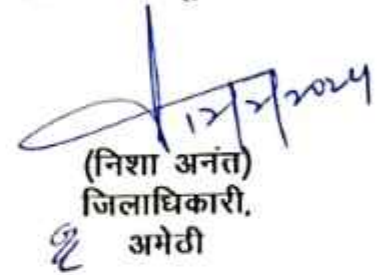 12/2/2024
(निशा अनंत)
जिलाधिकारी,
अमेठी